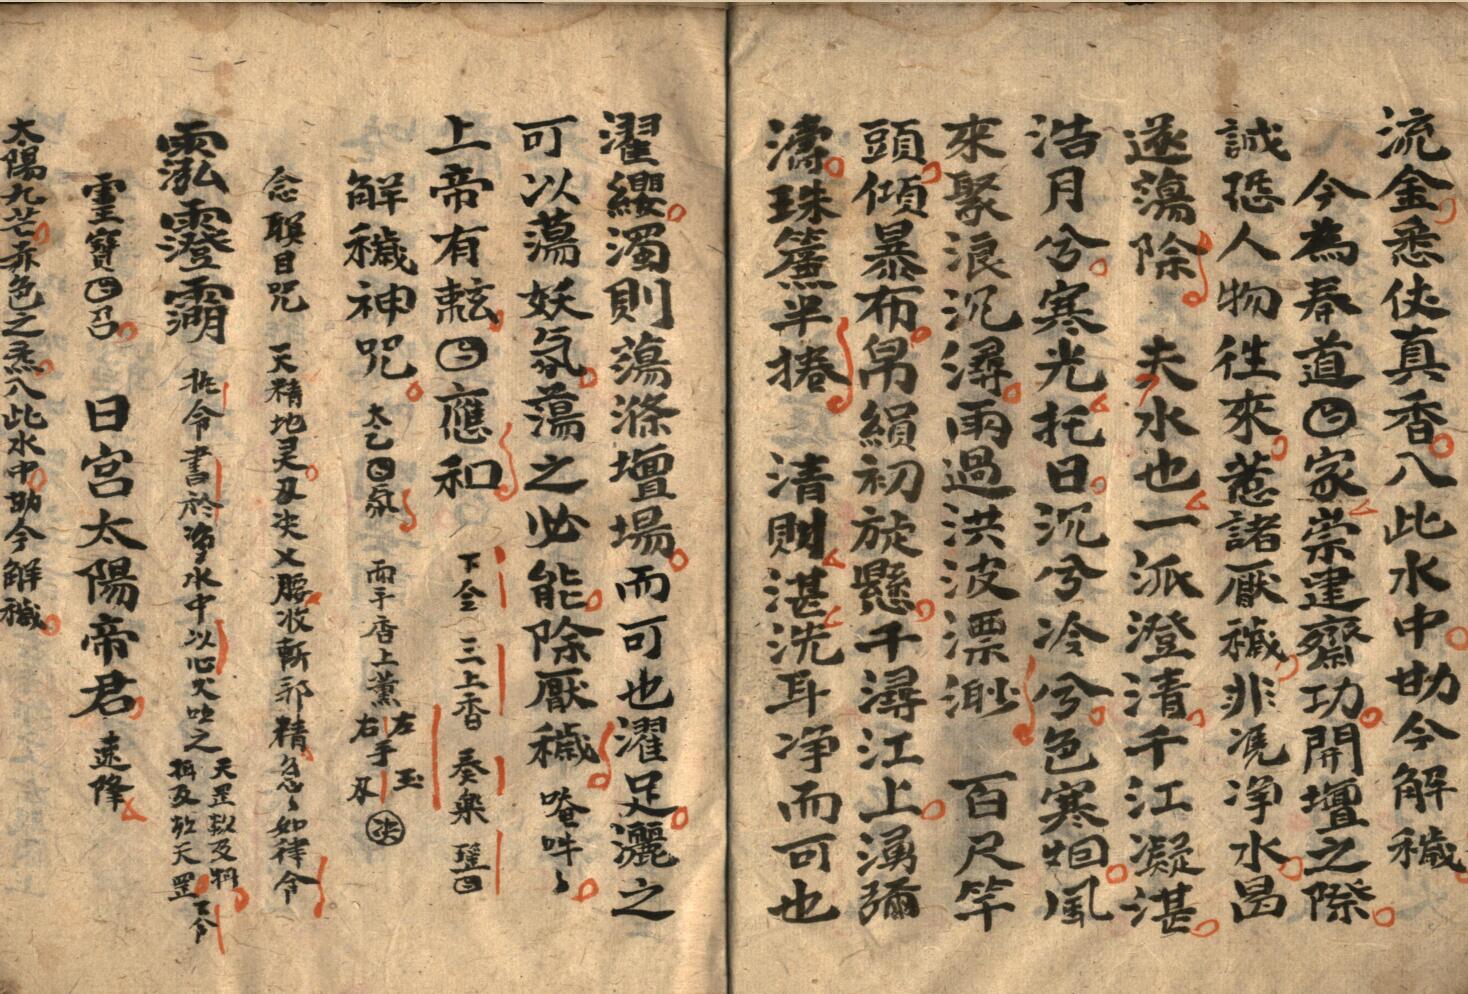 流金炁使真香入此水中助今解穢
今為奉道家崇建齋功開壇之際
誠恐人物徃來惹諸厭穢非凴淨水曷
遂蕩除 夫水也一派澄清千江凝湛
浩月兮寒光托日沉兮冷兮色寒烟風
來聚浪沉潯雨過洪波漂渺 百尺竿
頭傾暴布帛縜初旋懸千潯江上湧彌
濤珠簾半捲 清則湛洗耳净而可也
濯纓濁則蕩滌壇場而可也濯足灑之
可以蕩妖氛蕩之必能除厭穢 唵吽〻
上帝有敕應和 下令 三上香 奏樂
解穢神咒 太乙 氛 兩手香上薰 左玉 右手刃
念聯目咒 天精地灵刃决父腰收斬邪精急〻如律令
霐霪霘 扵淨水中以心火吐之
靈寶召 日宫太陽帝君 速降
太陽九芒赤色之炁入此水中助今解穢